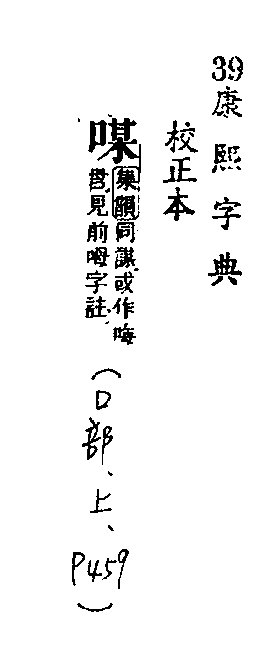 39康熙字典
校正本
㖼
集韻同謀或作㖼
𠰔見前呣字註
(口部、上、P459)